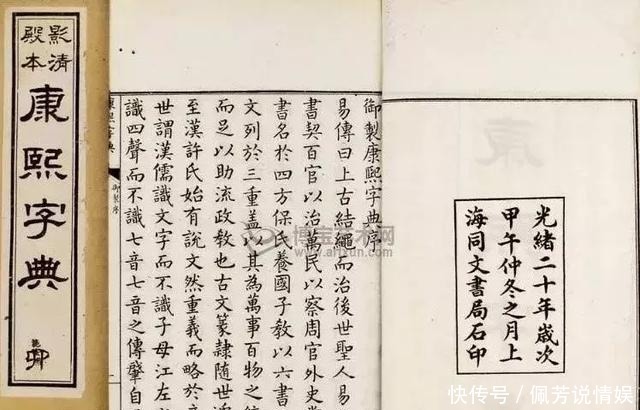 光緒二十年歲次
甲午仲冬之月上
海同文書局石印
御製康熙字典序
易傳曰上古結繩而治後世聖人易
書契百官以治萬民以察周官外史
書名於四方保氏養國子教以六書
文列於三重蓋以其為萬事百物之
而足以助流政教也古文篆隸隨世
至漢許氏始有說文然重義而略於
世謂漢儒識文字而不識子母江左
識四聲而不識七音七音之傳肇自
康熙字典
御製序
影清
殿本
康熙字典
博宝艺术网
快传号／佩芳说情娱